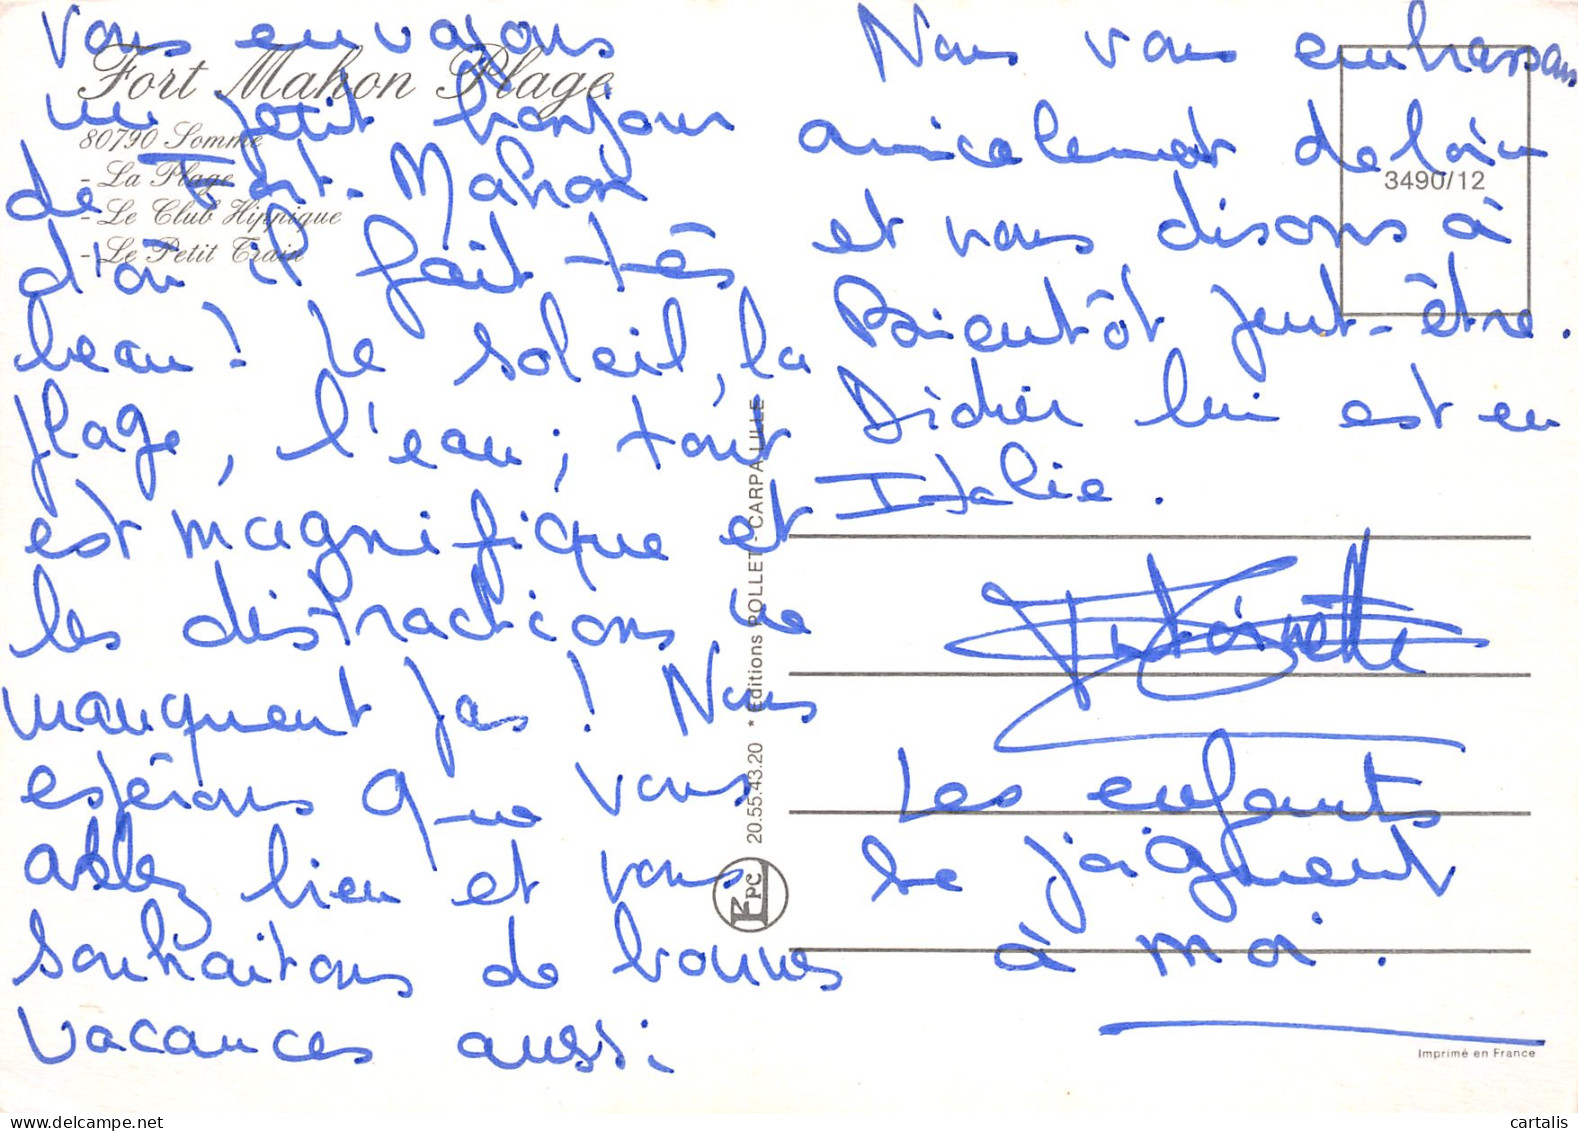 Vous envoyons
un petit bonjour
de Fort-Mahon
d'où il fait très
beau! Le soleil, la
plage, l'eau; tout
est magnifique et
les distractions ne
manquent pas! Nous
espérons que vous
allez bien et vous
souhaitons de bonnes
vacances aussi
Fort Mahon Plage
80790 Somme
- La Plage
- Le Club Hippique
- Le Petit Train
* Editions POLLET - CARPA LILLE
20.55.43.20
EPC
3490/12
Nous vous embrassons
amicalement de loin
et nous disons à
Bientôt peut-être.
Didier lui est en
Italie.
Antoinette
Les enfants
se joignent
à moi.
Imprimé en France
cartalis